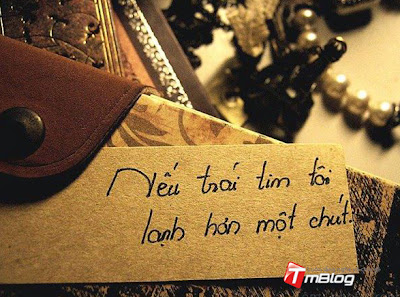 Nếu trái tim tôi
lạnh hơn một chút.
TmBlog